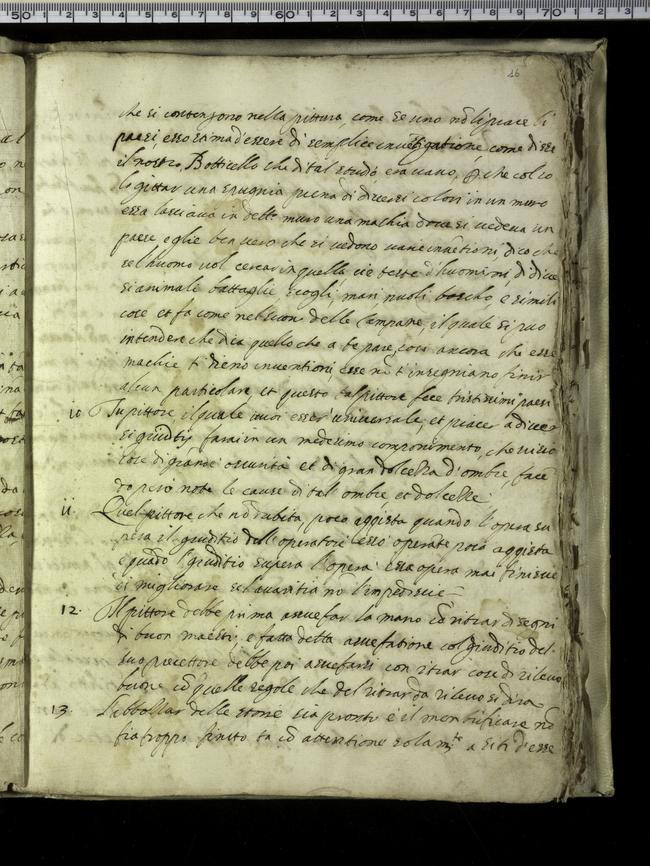 26
che si contengono nella pittura, come se uno nõ li piace li
paesi esso stima d'essere di semplice investigatione, come disse
il nostro Botticello che di tal studio era vano, che col so
lo gittar una spugnia piena di diversi colori in un muro
essa lasciava in detto muro una machia dove si vedeva un
paese eglie ben vero che si vedono varie inventioni, dico che
se l'huomo vol cercar in quella, cie teste d'huomini, di diver
si animale battaglie, scogli, mari, nuoli boschi, e simili
cose et fa come nel suon delle campane, il quale si può
intendere che dica quello che a te pare, cosi ancora che esse
machie ti dieno inventioni, esse nõ t'insegniano finir
alcun particolare, et questo tal pittore fece tristissimi paesi
10 Tu pittore il quale vuoi esser universale, et piacer a diver
si giuditij farai in un medesimo componimento, che vi sia
cose di grande oscurità et di gran dolcezza d'ombre, facē
do però note le cause di tall ombre et dolcezze
11. Quel pittore che nõ dubita, poco aqqista quando l'opera su
pera il giuditio dell operatore esso operāte poco aqqista
e quādo l giuditio supera l'opera essa opera mai finisce
di migliorare se l'avaritia nõ l'impedisce
12. Il pittore debbe prima assuefar la mano cõ ritrar disegni
di buon maestri, e fatta detta assuefatione col giuditio del
suo precettore debbe poi assuefarsi con ritrar cose di rilevo
buone cõ quelle regole che del ritrar da rilevo si dira
13. Lo bozzar delle storie sia pronto e il membrificare nõ
sia troppo finito sta cõ attentione solam.te a siti d'esse